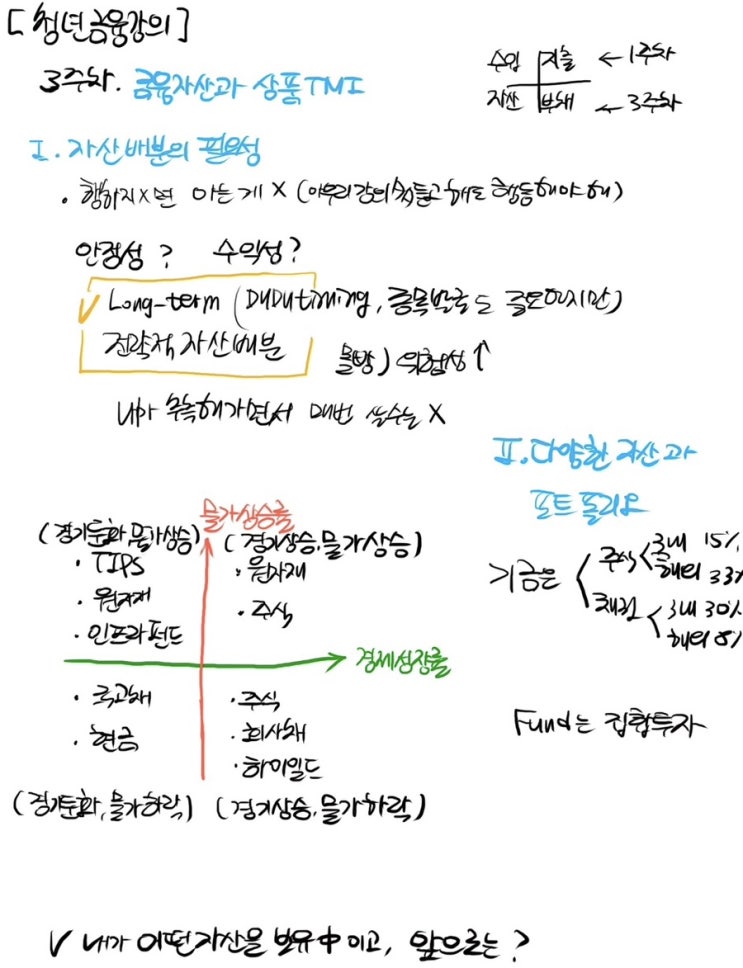 [청년금융강의]
3주차. 금융자산과 상품TMI
수입 지출 ← 1주차
자산 부채 ← 3주차
I. 자산배분의 필요성
· 행하지X면 아는게 X (아무리 강의 듣고 해도 행동해야 해)
안정성? 수익성?
✓ Long-term (timing, 종목발굴도 중요하지만)
전략적 자산배분
몰빵) 위험성↑
내가 부족해가면서 매번 실수는 X
II. 다양한 자산과
포트폴리오
기금은
주식 국내 15%
해외 33%
채권 국내 30%
해외 8%
Fund는 집합투자
물가상승률
(경기둔화,물가상승)
· TIPS
· 원자재
· 인프라펀드
(경기상승,물가상승)
· 원자재
· 주식
경제성장률
· 국고채
· 현금
(경기둔화,물가하락)
· 주식
· 회사채
· 하이일드
(경기상승,물가하락)
✓ 내가 어떤자산을 보유中이고, 앞으로는?